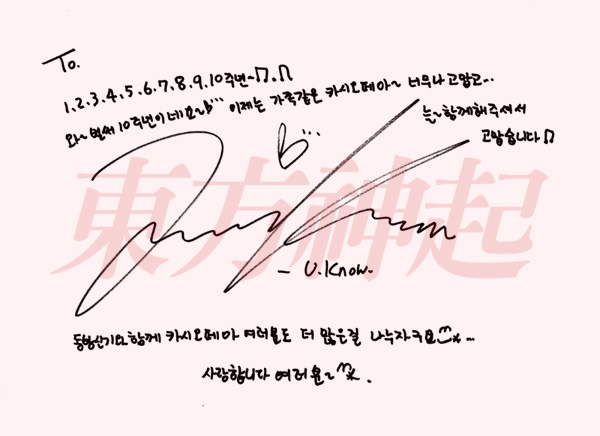 To.
1.2.3.4.5.6.7.8.9.10주년~♫.♫
와~ 벌써 10주년이네요~♡... 이제는 가족같은 카시오페아~ 너무나 고맙고...
늘~함께해주셔서
고맙습니다♫
東方神起
- U.Know.
동방신기와 함께 카시오페아 여러분도 더 많은걸 나누자구요^^*...
사랑합니다 여러분~^^*.